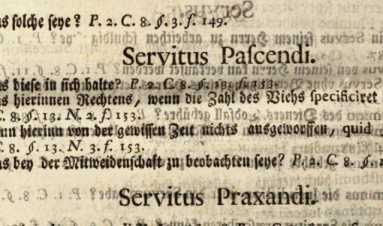 s solche seye? P. 2. C. 8. §. 3. f. 149.
Servitus Pascendi.
s diese in sich halte? P. 2. C. 8. §. 13. f. 153.
s hierinnen Rechtens, wenn die Zahl des Viehs specificiret
C. 8. §. 13. N. 2. f. 153.
nn hierinn von der gewissen Zeit nichts ausgeworffen, quid
C. 8. §. 13. N. 3. f. 153.
s bey der Mitweidenschaft zu beobachten seye? P. 2. C. 8. §.
Servitus Praxandi.